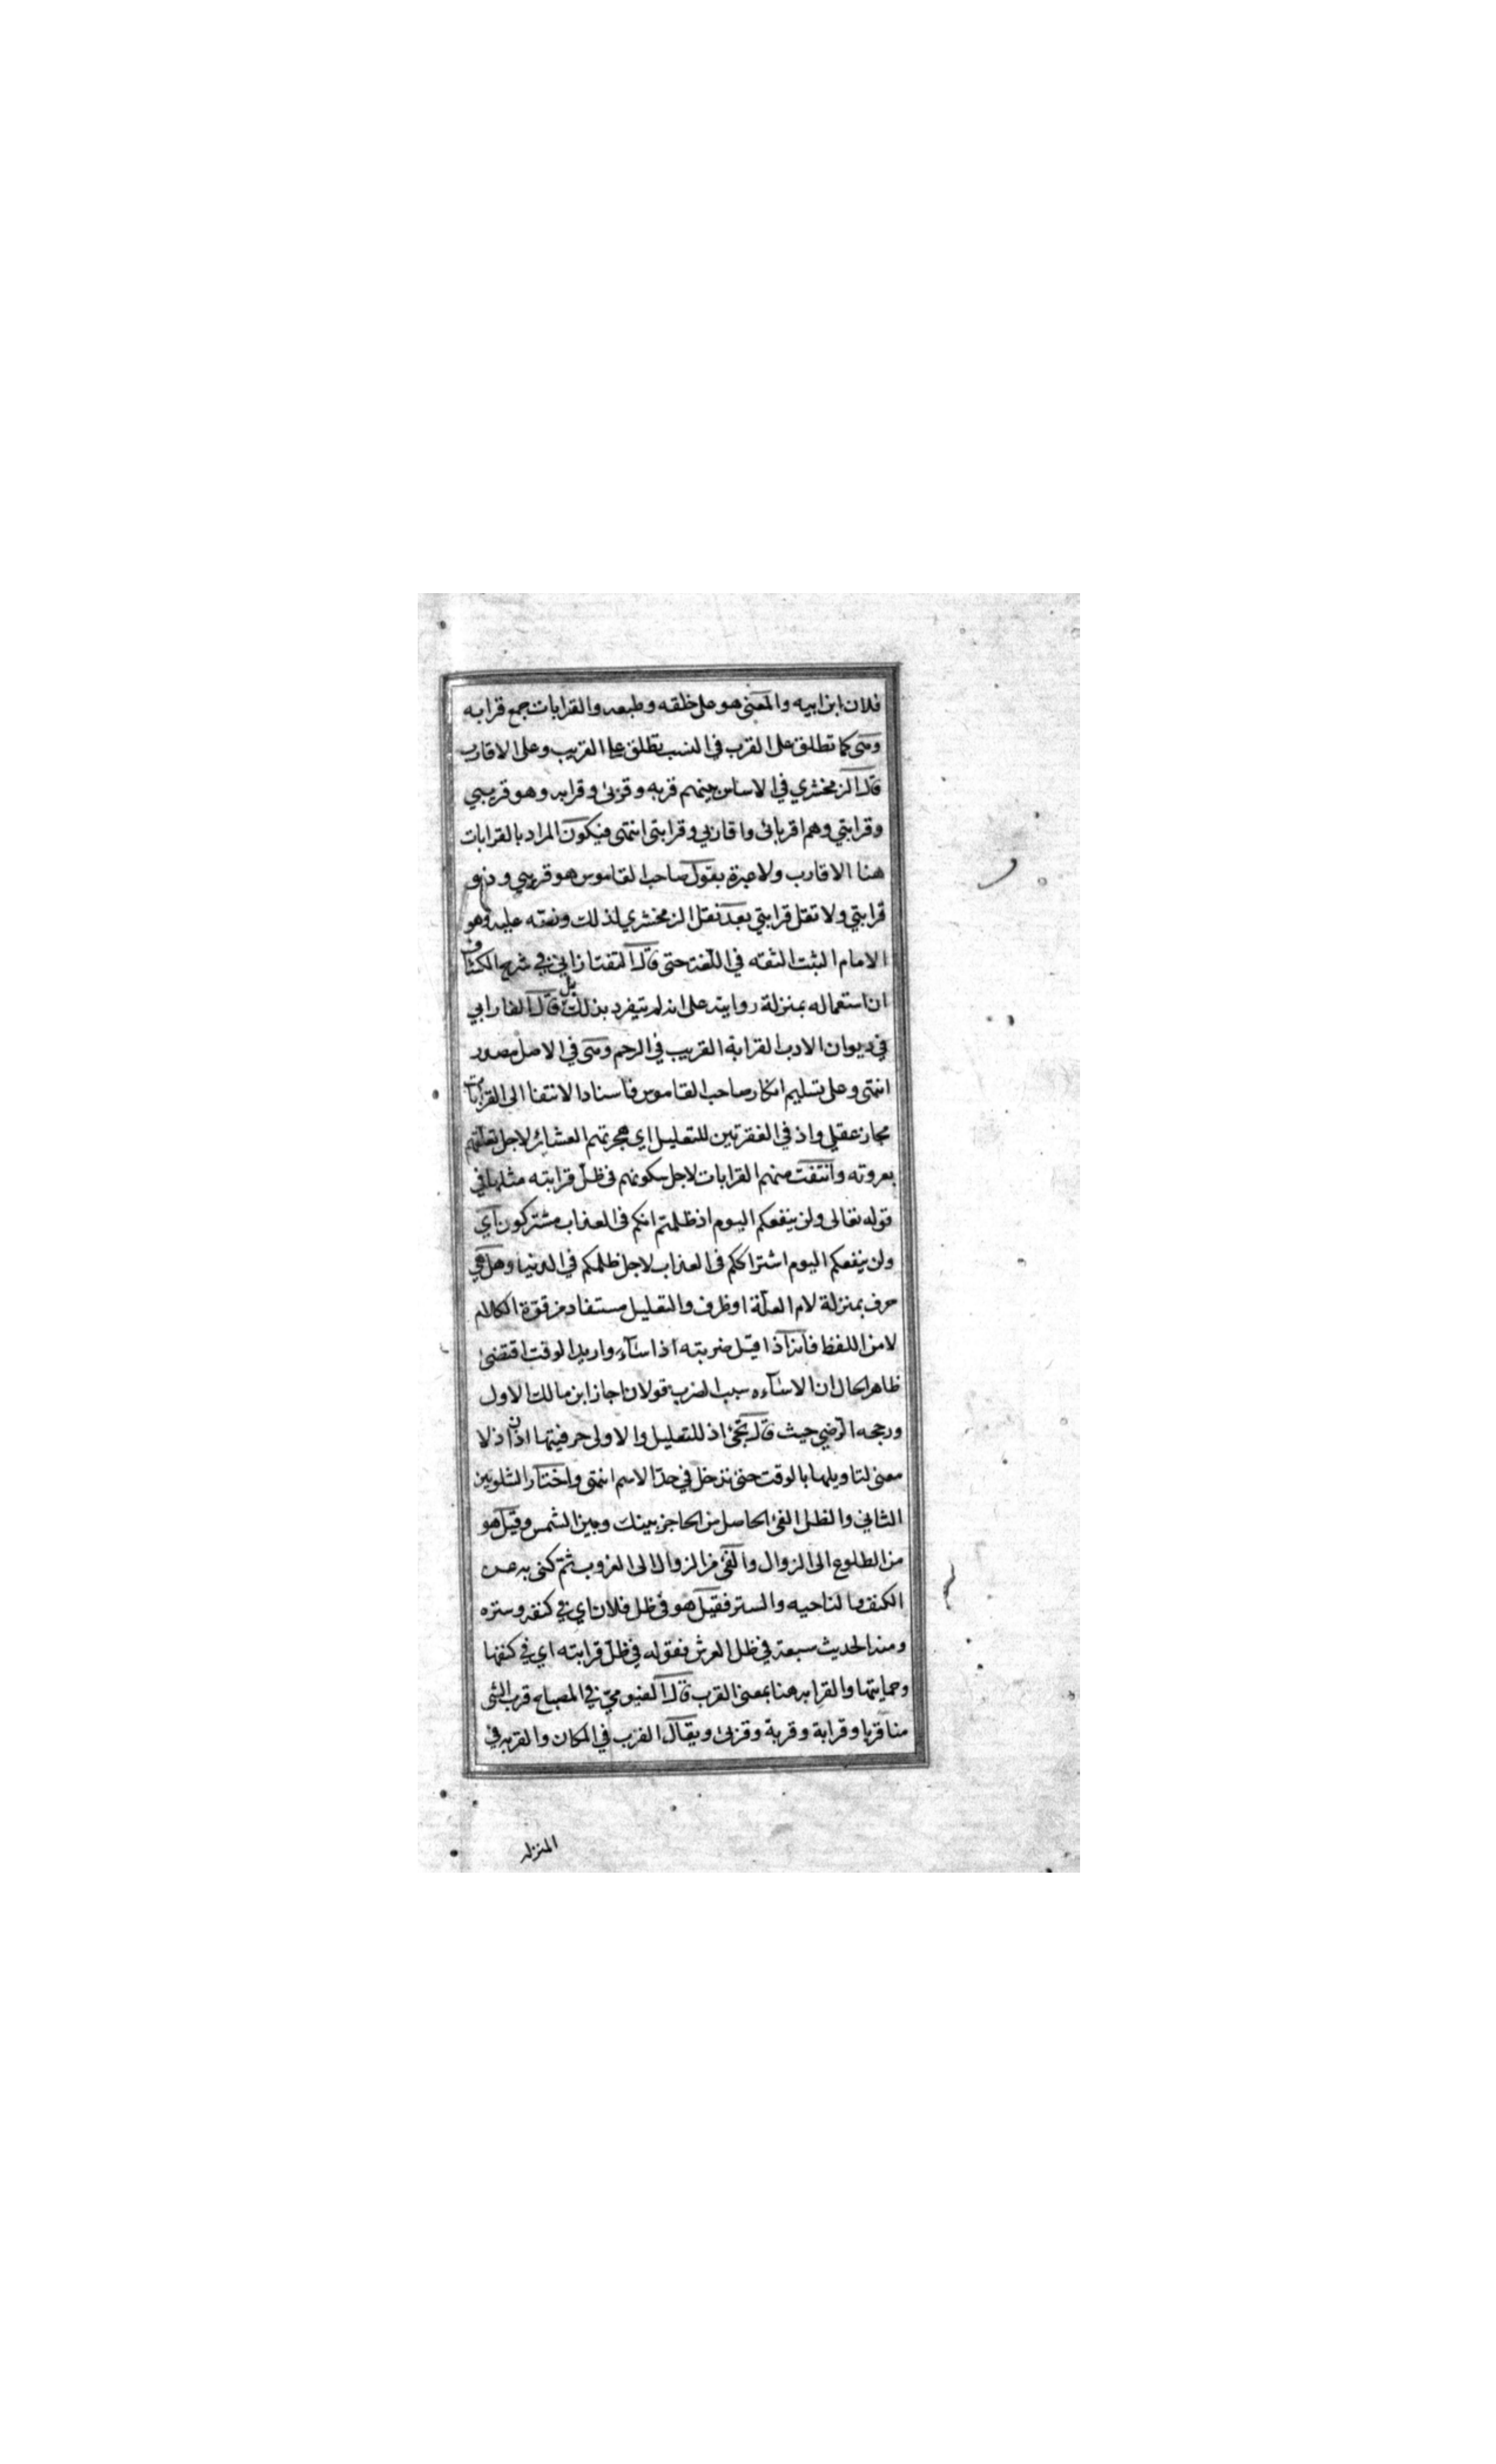 فلان ابن ابيه والمعنى هو على خلقه وطبعه والقرابات جمع قرابه
وهى كما تطلق على القرب في النسب تطلق على القريب وعلى الاقارب
قال الزمخشري في الاساس بينهم قربه وقربى وقرابه وهو قريبي
وقرابتي وهم اقربائى واقاربي وقرابتى انتهى فيكون المراد بالقرابات
هنا الاقارب ولا عبرة بقول صاحب القاموس هو قريبي وذو
قرابتي ولا تقل قرابتي بعد نقل الزمخشري لذلك ونصه عليه وهو
الامام الثبت الثقه في اللغة حتى قال التفتازاني في شرح الكشاف
ان استعماله بمنزلة روايته على انه لم يتفرد بذلك بل قال الفارابي
في ديوان الادب القرابة القريب في الرحم وهى في الاصل مصدر
انتهى وعلى تسليم انكار صاحب القاموس فاسناد الانتفا الى القرابات
مجاز عقلي واذ في الفقرتين للتعليل اي هجرتهم العشائر لاجل تعلقهم
بعروته وانتفت منهم القرابات لاجل سكونهم في ظل قرابته مثلها في
قوله تعالى ولن ينفعكم اليوم اذ ظلمتم انكم في العذاب مشتركون اي
ولن ينفعكم اليوم اشتراككم في العذاب لاجل ظلمكم في الدنيا وهل هي
حرف بمنزلة لام العلة او ظرف والتعليل مستفاد من قوة الكلام
لا من اللفظ فانه اذا قيل ضربته اذ اسآء واريد الوقت اقتضى
ظاهر الحال ان الاسآءه سبب الضرب قولان اجاز ابن مالك الاول
ورجحه الرضي حيث قال تجئ اذ للتعليل والاولى حرفيتها اذن اذ لا
معنى لتاويلها بالوقت حتى تدخل في حد الاسم انتهى واختار الشلوبين
الثاني والظل الفئ الحاصل من الحاجز بينك وبين الشمس وقيل هو
من الطلوع الى الزوال والفئ من الزوال الى الغروب ثم كنى به عن
الكنف والناحيه والستر فقيل هو في ظل فلان اي في كنفه وستره
ومنه الحديث سبعة في ظل العرش فقوله في ظل قرابته اي في كنفها
وحمايتها والقرابه هنا بمعنى القرب قال الفيومي في المصباح قرب الشئ
منا قربا وقرابة وقربة وقربى ويقال القرب في المكان والقربه في
المنزله